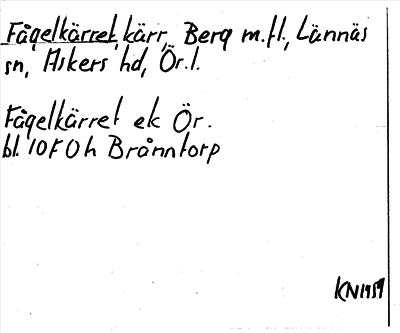 Fågelkärret, kärr, Berg m.fl., Lännäs
sn, Askers hd, Ör.l.
Fågelkärret ek Ör.
bl. 10F0h Brånntorp
KN1959